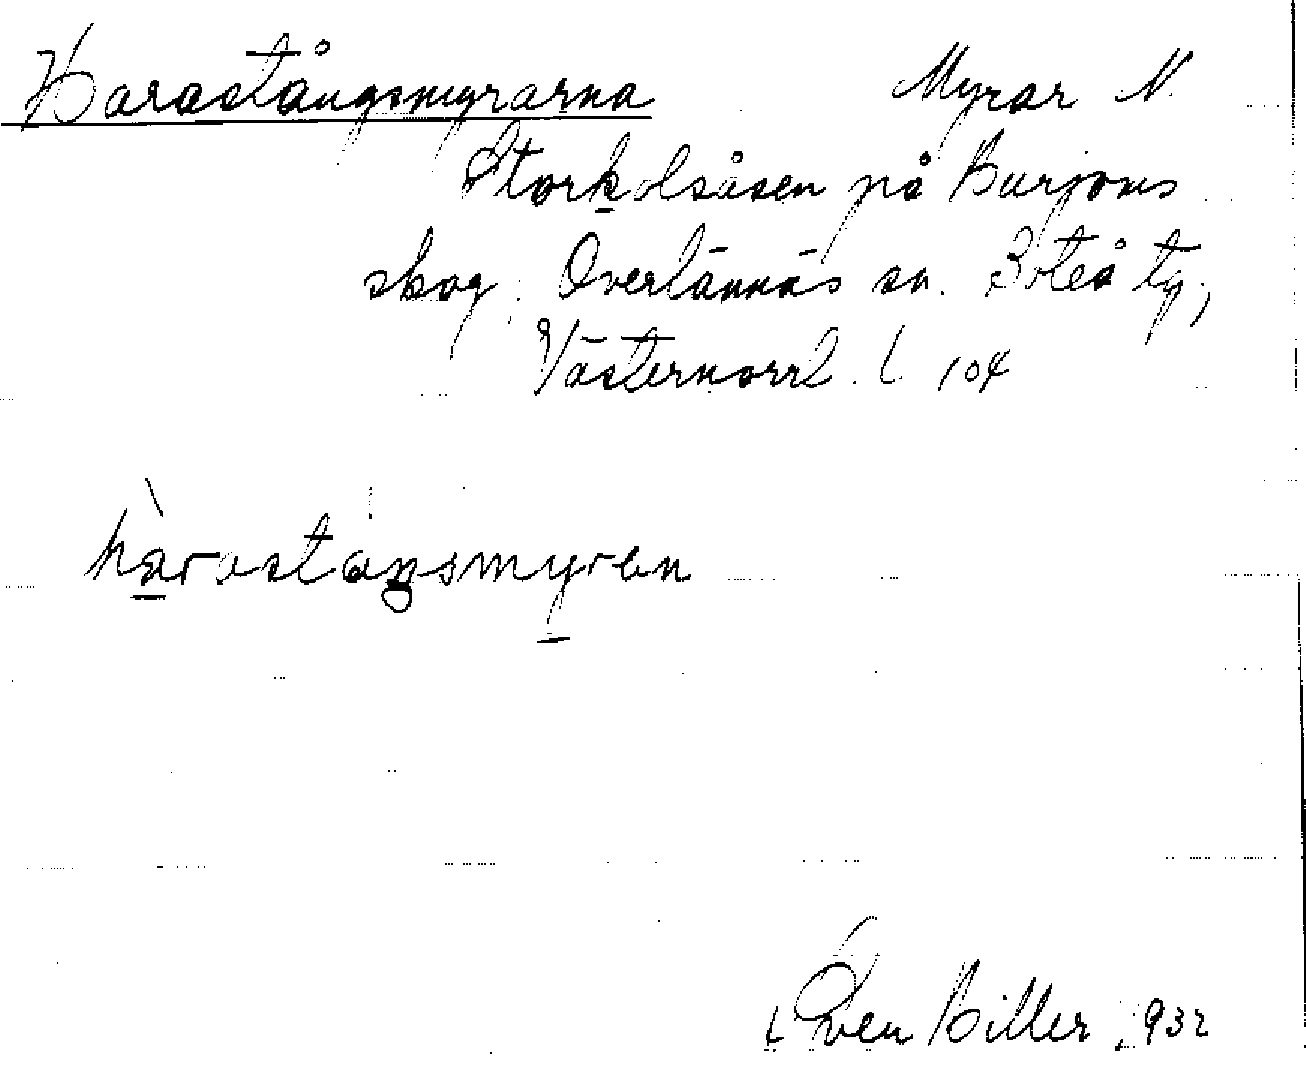 Harastångsmyrarna Myrar N.
Storkolsåsen på Burjons
skog, Överlännäs sn. Boteå tg,
Västernorrl. l 104
harastångsmyren
Sven Biller, 932